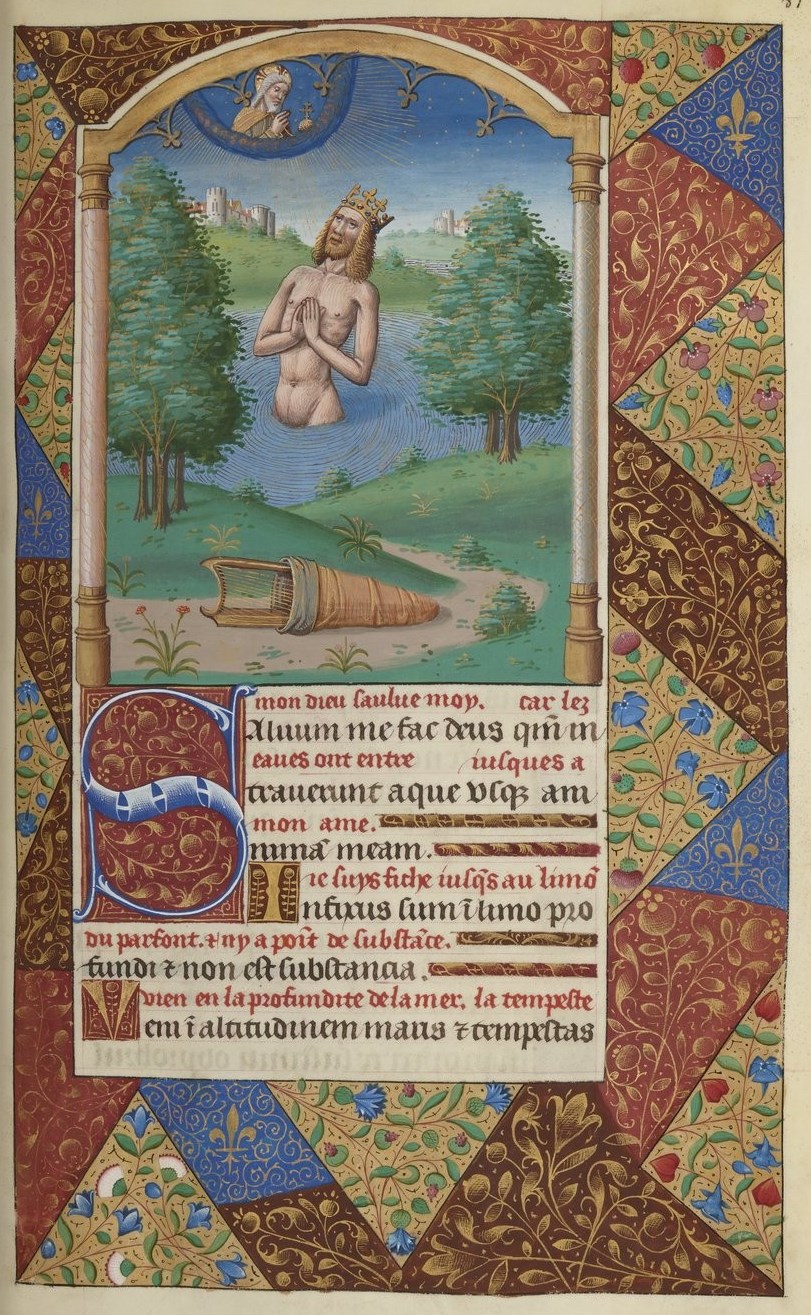 mon dieu saulue moy. car lez
Saluum me fac deus qm̄ in
eaues ont entre iusques a
trauerunt aque vsqꝫ am
mon ame.
nimā meam.
ie suys fiche iusq̄s au limō
Infixus sum ī limo pro
du parfont. ⁊ ny a poīt de substāce.
fundi ⁊ non est substancia.
vien en la profundite de la mer. la tempeste
Veni ī altitudinem maris ⁊ tempestas